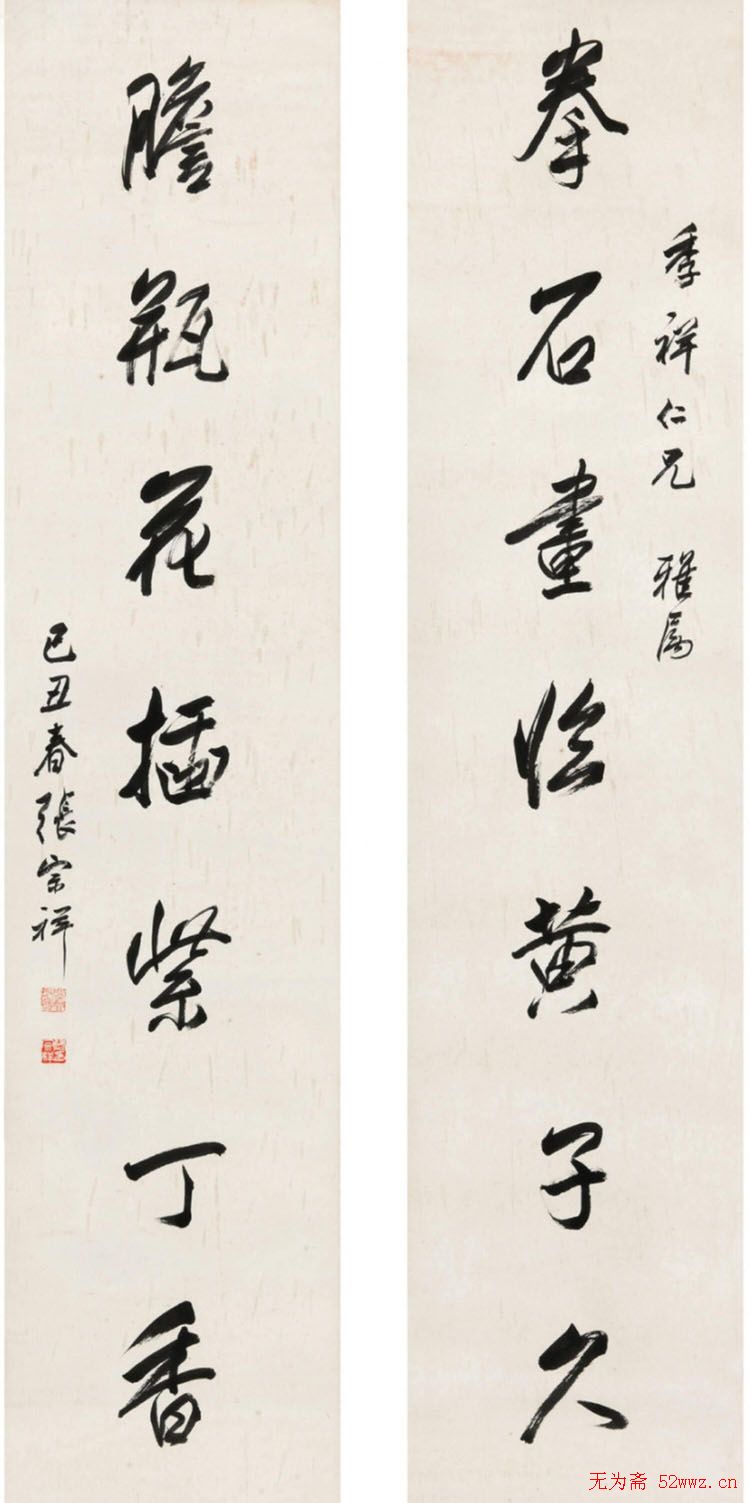 季祥仁兄 雅属
拳石畫临黄子久
膽瓶花插紫丁香
己丑春張宗祥
无为斋 52wwz.cn